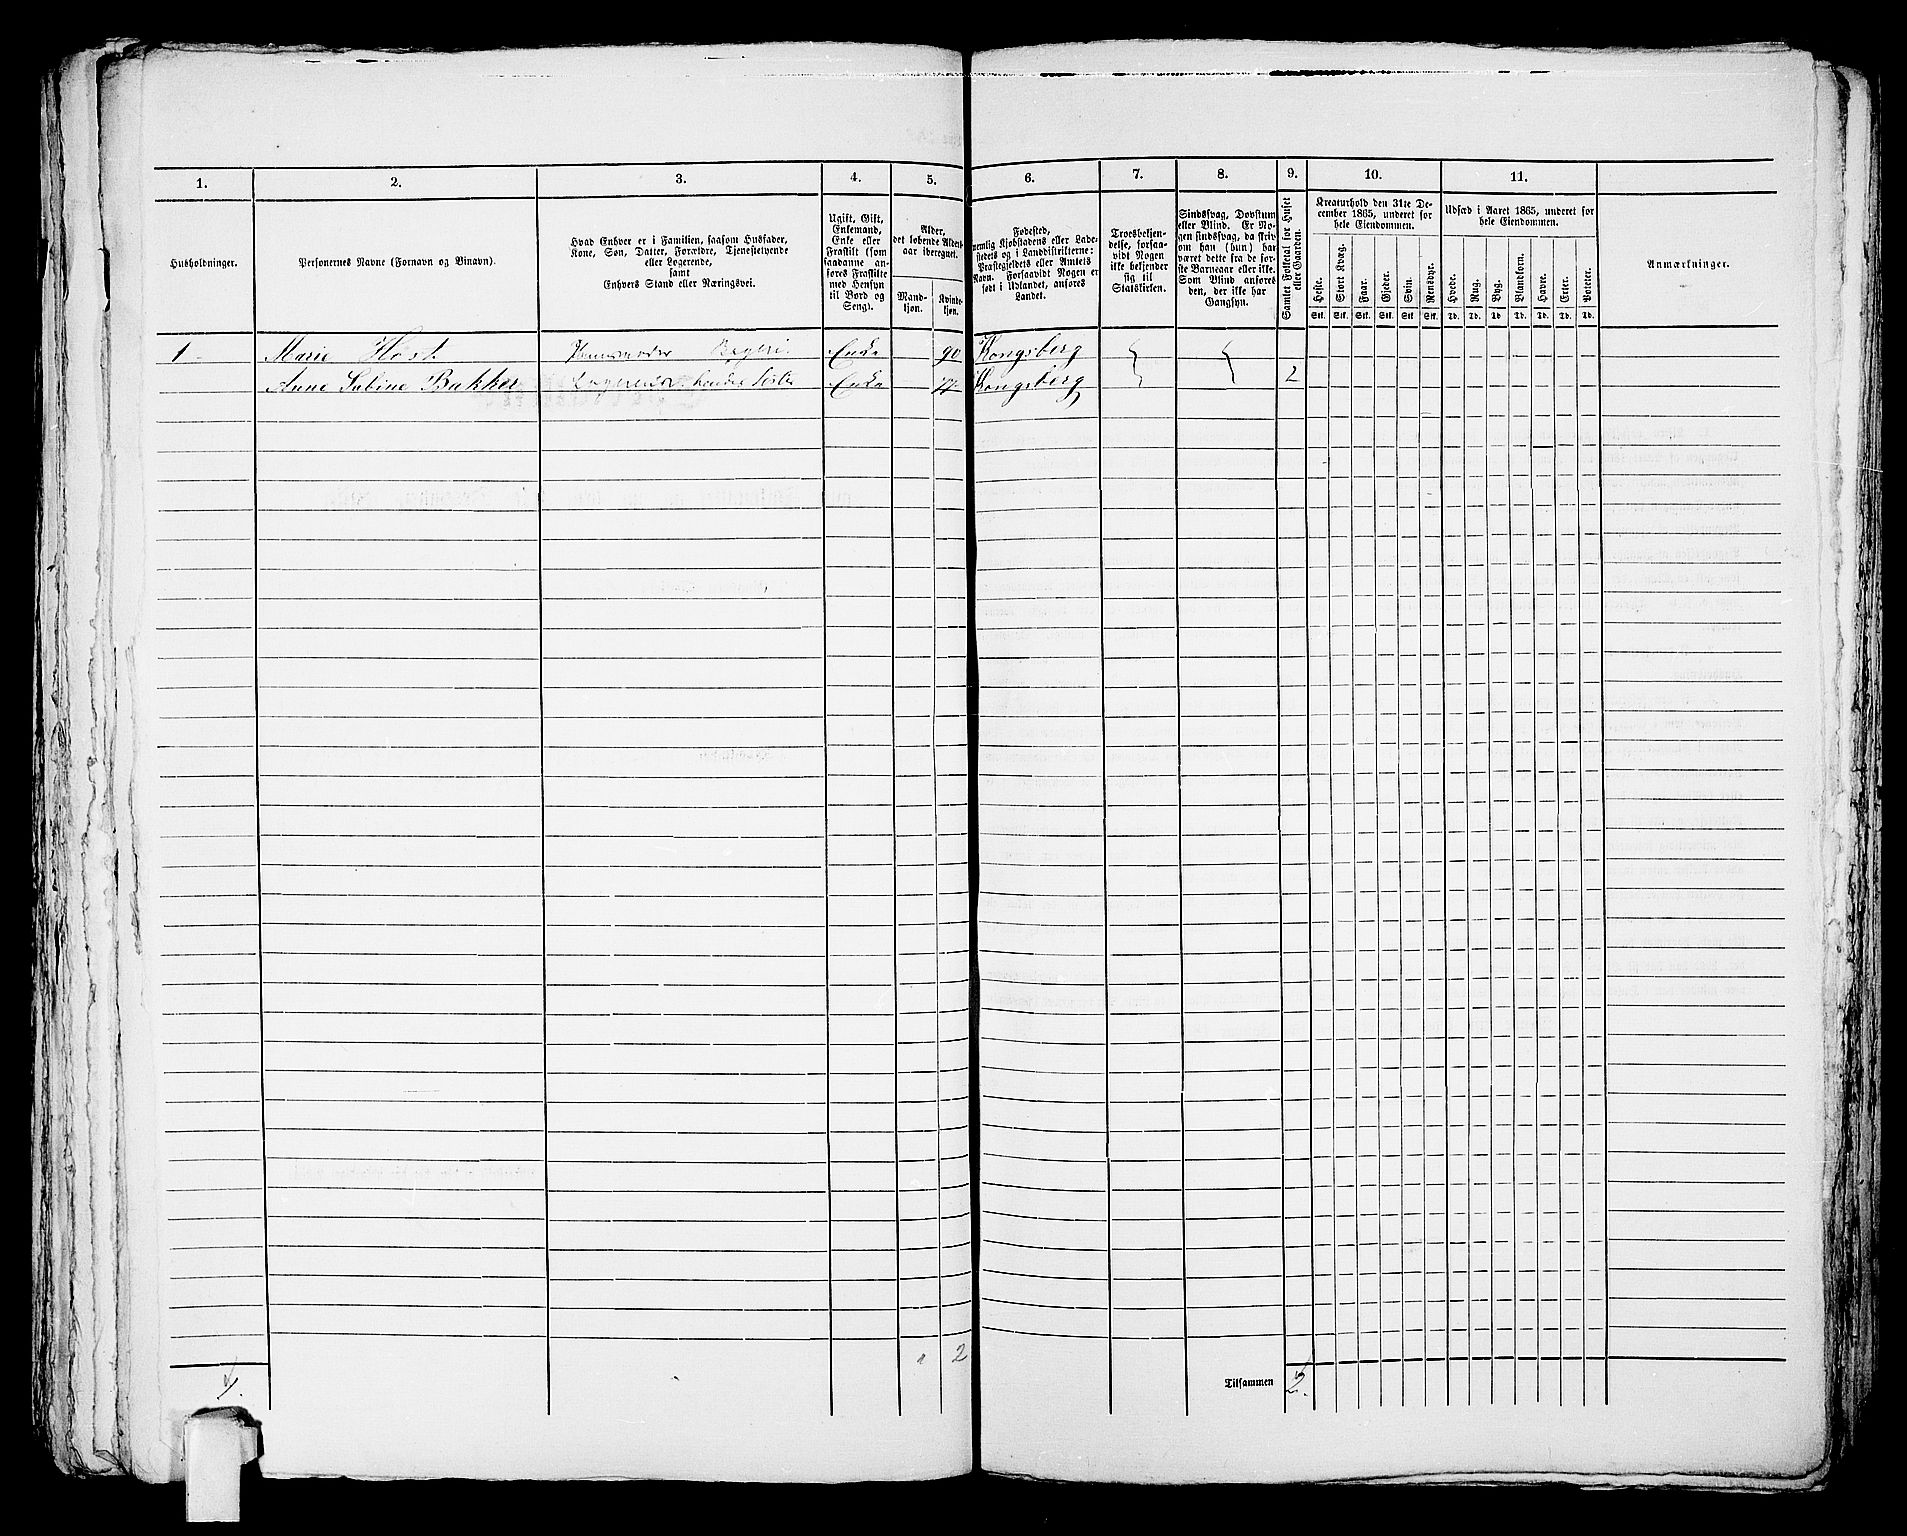 1. 2. 3. 4. 5. 6. 7. 8. 9. 10. 11.
Husholdninger.
Personernes Navne (Fornavn og Binavn).
Hvad Enhver er i Familien, saasom Husfader,
Kone, Søn, Datter, Forældre, Tjenestetyende
eller Logerende,
samt
Enhvers Stand eller Næringsvei.
Ugift, Gift,
Enkemand,
Enke eller
Fraskilt (som
saadanne an-
føres Fraskilte
med Hensyn
til Bord og
Seng).
Alder,
det løbende Alders-
aar iberegnet.
Mand-
kjøn.
Kvinde-
kjøn.
Fødested,
nemlig Kjøbstadens eller Lade-
stedets og i Landdistrikterne:
Præstegjeldets eller Amtets
Navn. Forsaavidt Nogen er
født i Udlandet, anføres
Landet.
Troesbekjen-
delse, forsaa-
vidt Nogen
ikke bekjender
sig til
Statskirken.
Sindssvag, Døvstum
eller Blind. Er No-
gen sindssvag, da skriv
om han (hun) har
været dette fra de før-
ste Barneaar eller ikke.
Som Blind anføres
den, der ikke har
Gangsyn.
Samlet Folketal for Huset
eller Gaarden.
Kreaturhold den 31te De-
cember 1865, underet for
hele Eiendommen.
Heste. Stort Kvæg. Faar. Gjeder. Svin. Rensdyr.
Stk. Stk. Stk. Stk. Stk. Stk.
Udsæd i Aaret 1865, underet for
hele Eiendommen.
Hvede. Rug. Byg. Blandkorn. Havre. Erter. Poteter.
Td. Td. Td. Td. Td. Td. Td.
Anmærkninger.
1 Marie Høst Enke 90 Kongsberg
Anne Sabine Bakker Logerende, hendes Søster Enke 77 Kongsberg 2
2
Tilsammen 2.
1.